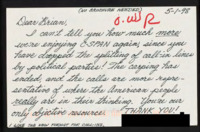 (NO BROCHURE NEEDED) 5-1-95
Dear Brian,
I can't tell you how much more
we're enjoying CSPAN again, since you
have dropped the splitting of callers' lines
by political parties! The carping has
ended, and the calls are more repre-
sentative of where the American people
really are in their thinking. You're our
only objective resource. THANK YOU!
I LIKE THE NEW FORMAT FOR CALL-INS,